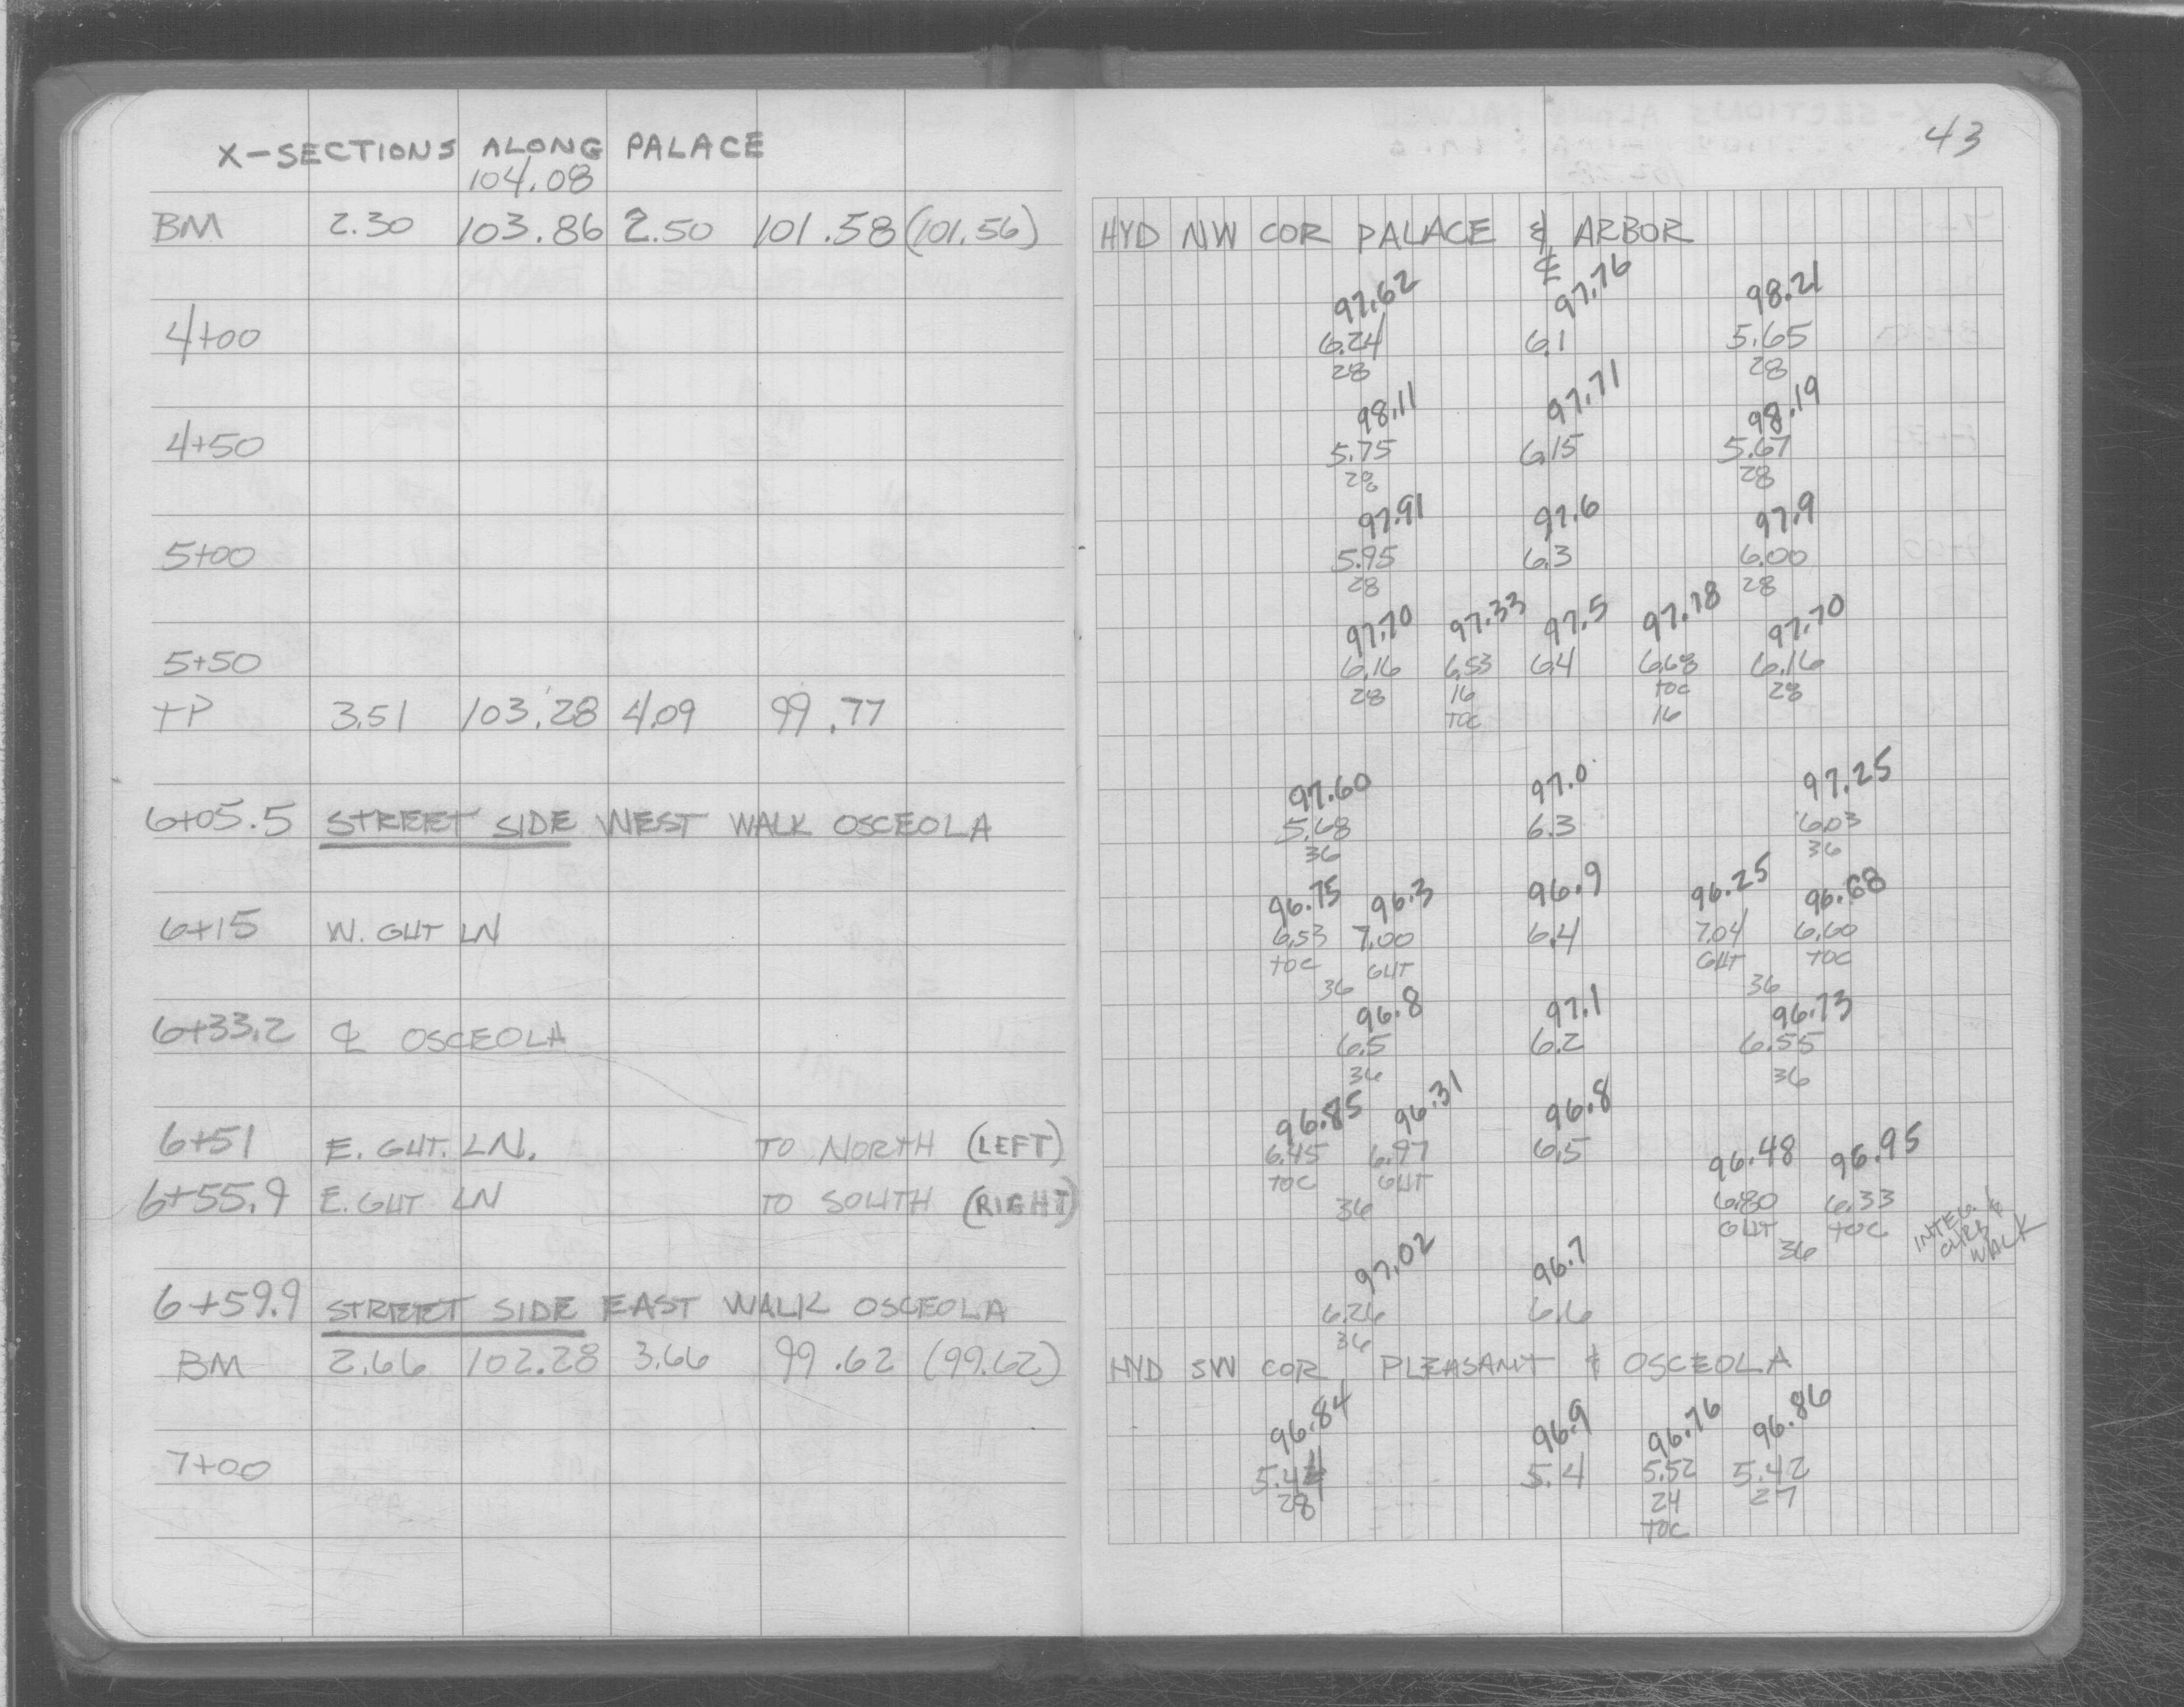 43
X-SECTIONS ALONG PALACE
104.08
BM 2.30 103.86 2.50 101.58 (101.56) HYD NW COR PALACE & ARBOR
℄
97.62 97.76 98.21
4+00 6.24 6.1 5.65
28 28
98.11 97.71 98.19
4+50 5.75 6.15 5.67
28 28
97.91 97.6 97.9
5+00 5.95 6.3 6.00
28 28
97.70 97.33 97.5 97.18 97.70
5+50 6.16 6.53 6.4 6.68 6.16
28 16 TOC 28
TP 3.51 103.28 4.09 99.77 TOC 16
97.60 97.0 97.25
6+05.5 STREET SIDE WEST WALK OSCEOLA 5.68 6.3 6.03
36 36
96.75 96.3 96.9 96.25 96.68
6+15 W. GUT LN 6.53 7.00 6.4 7.04 6.60
TOC GUT GUT TOC
36 36
96.8 97.1 96.73
6+33.2 ℄ OSCEOLA 6.5 6.2 6.55
36 36
96.85 96.31 96.8
6+51 E. GUT. LN. TO NORTH (LEFT) 6.45 6.97 6.5
TOC GUT
36
96.48 96.95
6+55.9 E. GUT LN TO SOUTH (RIGHT) 6.80 6.33
GUT TOC
36
INTEG. &
CURB
WALK
97.02 96.7
6+59.9 STREET SIDE EAST WALK OSCEOLA 6.26 6.6
36
BM 2.66 102.28 3.66 99.62 (99.62) HYD SW COR PLEASANT & OSCEOLA
96.84 96.9 96.76 96.86
7+00 5.44 5.4 5.52 5.42
28 24 27
TOC